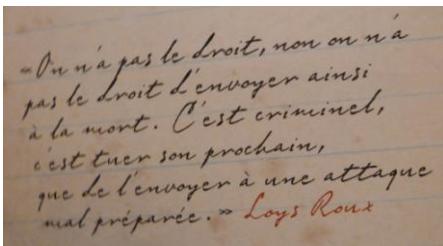 «On n'a pas le droit, non on n'a
pas le droit d'envoyer ainsi
à la mort. C'est criminel,
c'est tuer son prochain,
que de l'envoyer à une attaque
mal préparée.» Loys Roux